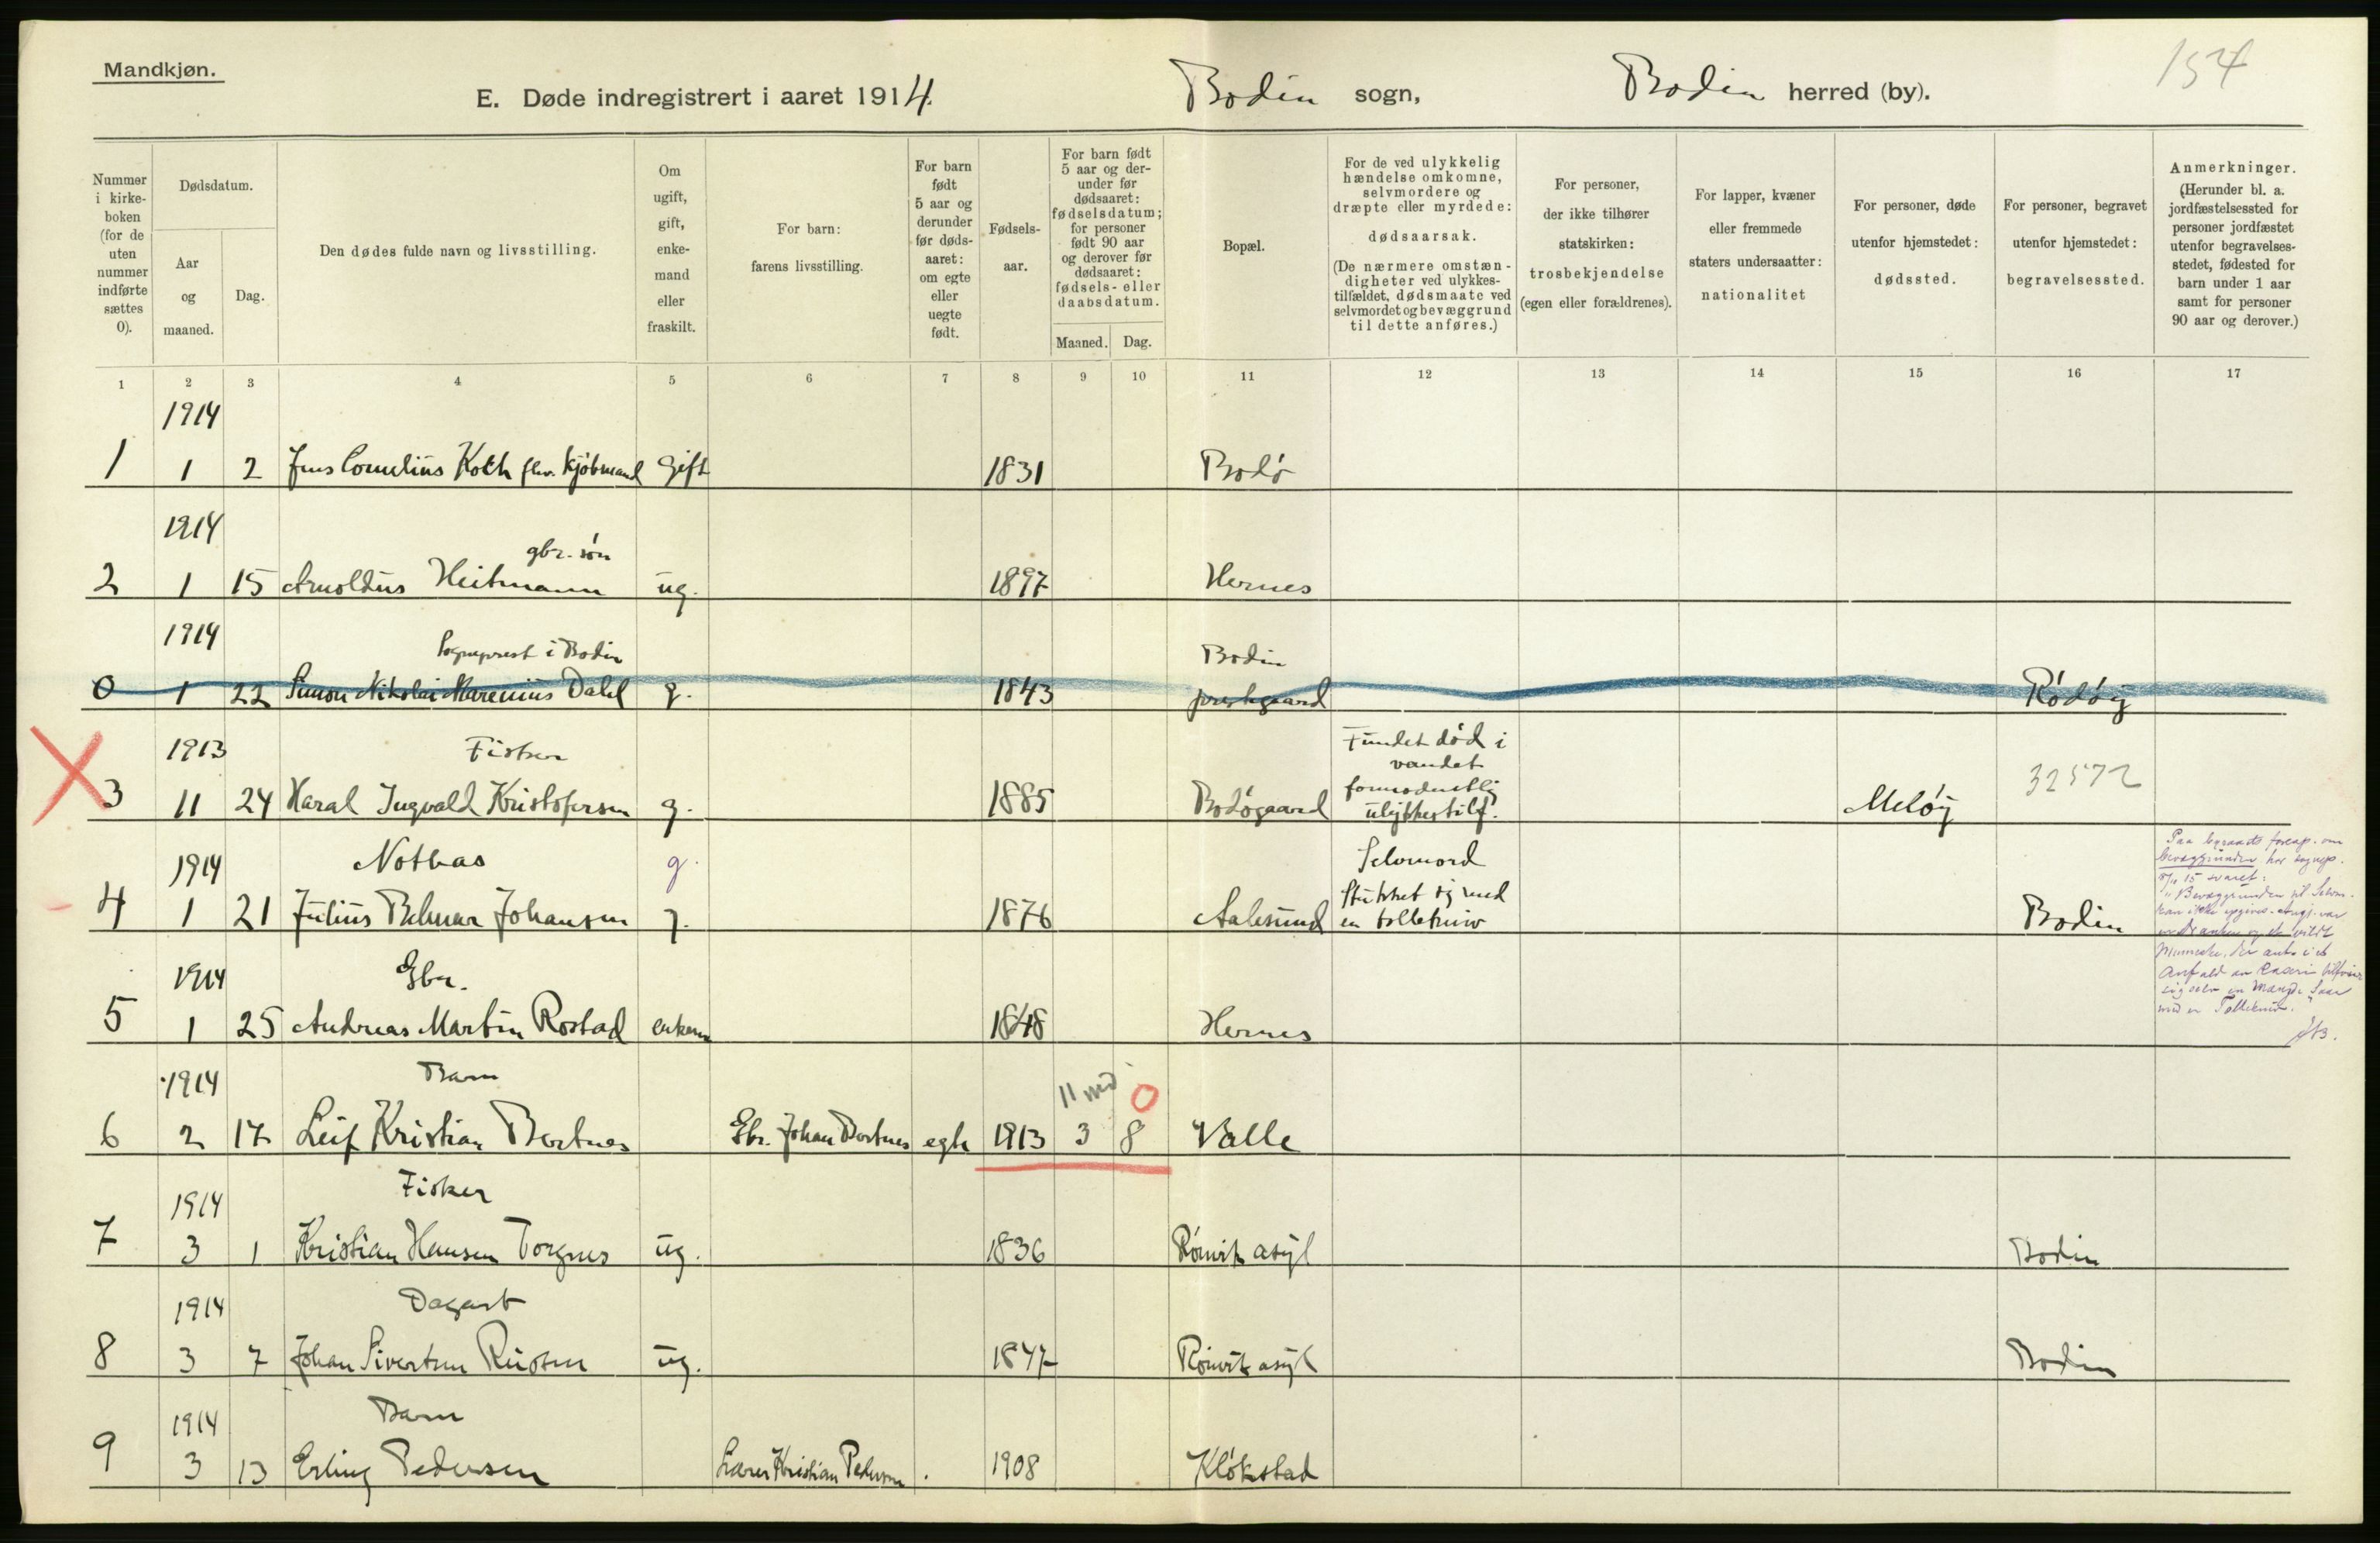 Mandkjøn.
154
E. Døde indregistrert i aaret 1914. Bodin sogn, Bodin herred (by).
Nummer
i kirke-
boken
(for de
uten
nummer
indførte
sættes
0).
Dødsdatum.
Aar
og
maaned.
Dag.
Den dødes fulde navn og livsstilling.
Om
ugift,
gift,
enke-
mand
eller
fraskilt.
For barn:
farens livsstilling.
For barn
født
5 aar og
derunder
før døds-
aaret:
om egte
eller
uegte
født.
Fødsels-
aar.
For barn født
5 aar og der-
under før
dødsaaret:
fødselsdatum;
for personer
født 90 aar
og derover før
dødsaaret:
fødsels- eller
daabsdatum.
Maaned.
Dag.
Bopæl.
For de ved ulykkelig
hændelse omkomne,
selvmordere og
dræpte eller myrdede:
dødsaarsak.
(De nærmere omstæn-
digheter ved ulykkes-
tilfældet, dødsmaate ved
selvmordet og bevæggrund
til dette anføres.)
For personer,
der ikke tilhører
statskirken:
trosbekjendelse
(egen eller forældrenes).
For lapper, kvæner
eller fremmede
staters undersaatter:
nationalitet
For personer, døde
utenfor hjemstedet:
dødssted.
For personer, begravet
utenfor hjemstedet:
begravelsessted.
Anmerkninger.
(Herunder bl. a.
jordfæstelsessted for
personer jordfæstet
utenfor begravelses-
stedet, fødested for
barn under 1 aar
samt for personer
90 aar og derover.)
1 2 3 4 5 6 7 8 9 10 11 12 13 14 15 16 17
1914
1 1 2 Jens Cornelius Koch fhv. kjøbmand Gift 1831 Bodø
1914 gbr. søn
2 1 15 Arnoldus Heitmann ug. 1897 Hernes
1914 Sogneprest i Bodin Bodin
0 1 22 Simon Nikolai Marenius Dahl g. 1843 prestegaard Rødøy
1913 Fisker Fundet død i
vandet
formodentlig
3 11 24 Haral Ingvald Kristofersen g. 1885 Bodøgaard ulykkestilf. Meløy 32572
1914 Notbas g. Selvmord
Stukket sig med
4 1 21 Julius Johansen g. 1876 Aalesund en tollekniv Bodin
Paa byraaets foresp. om
bevæggrunden har sognep.
8/11 15 svaret:
"Bevæggrunden til Selvm.
kan ikke opgives.
Menneske, der i et
Anfald av Raseri
sig selv en Mængde Saar
med en Tollekniv."
1914 Gbr.
5 1 25 Andreas Martin Rostad enkem 1848 Hernes
1914 Barn 11 md 0
6 2 17 Leif Kristian Bertnes Gbr. Johan Bertnes egte 1913 3 8 Valle
1914 Fisker
7 3 1 Kristian Hansen Torgnes ug. 1836 Rønvik asyl Bodin
1914 Dagarb
8 3 7 Johan Sivertsen ug. 1847 Rønvik asyl Bodin
1914 Barn
9 3 13 Erling Pedersen Lærer Kristian Pedersen 1908 Kløkstad